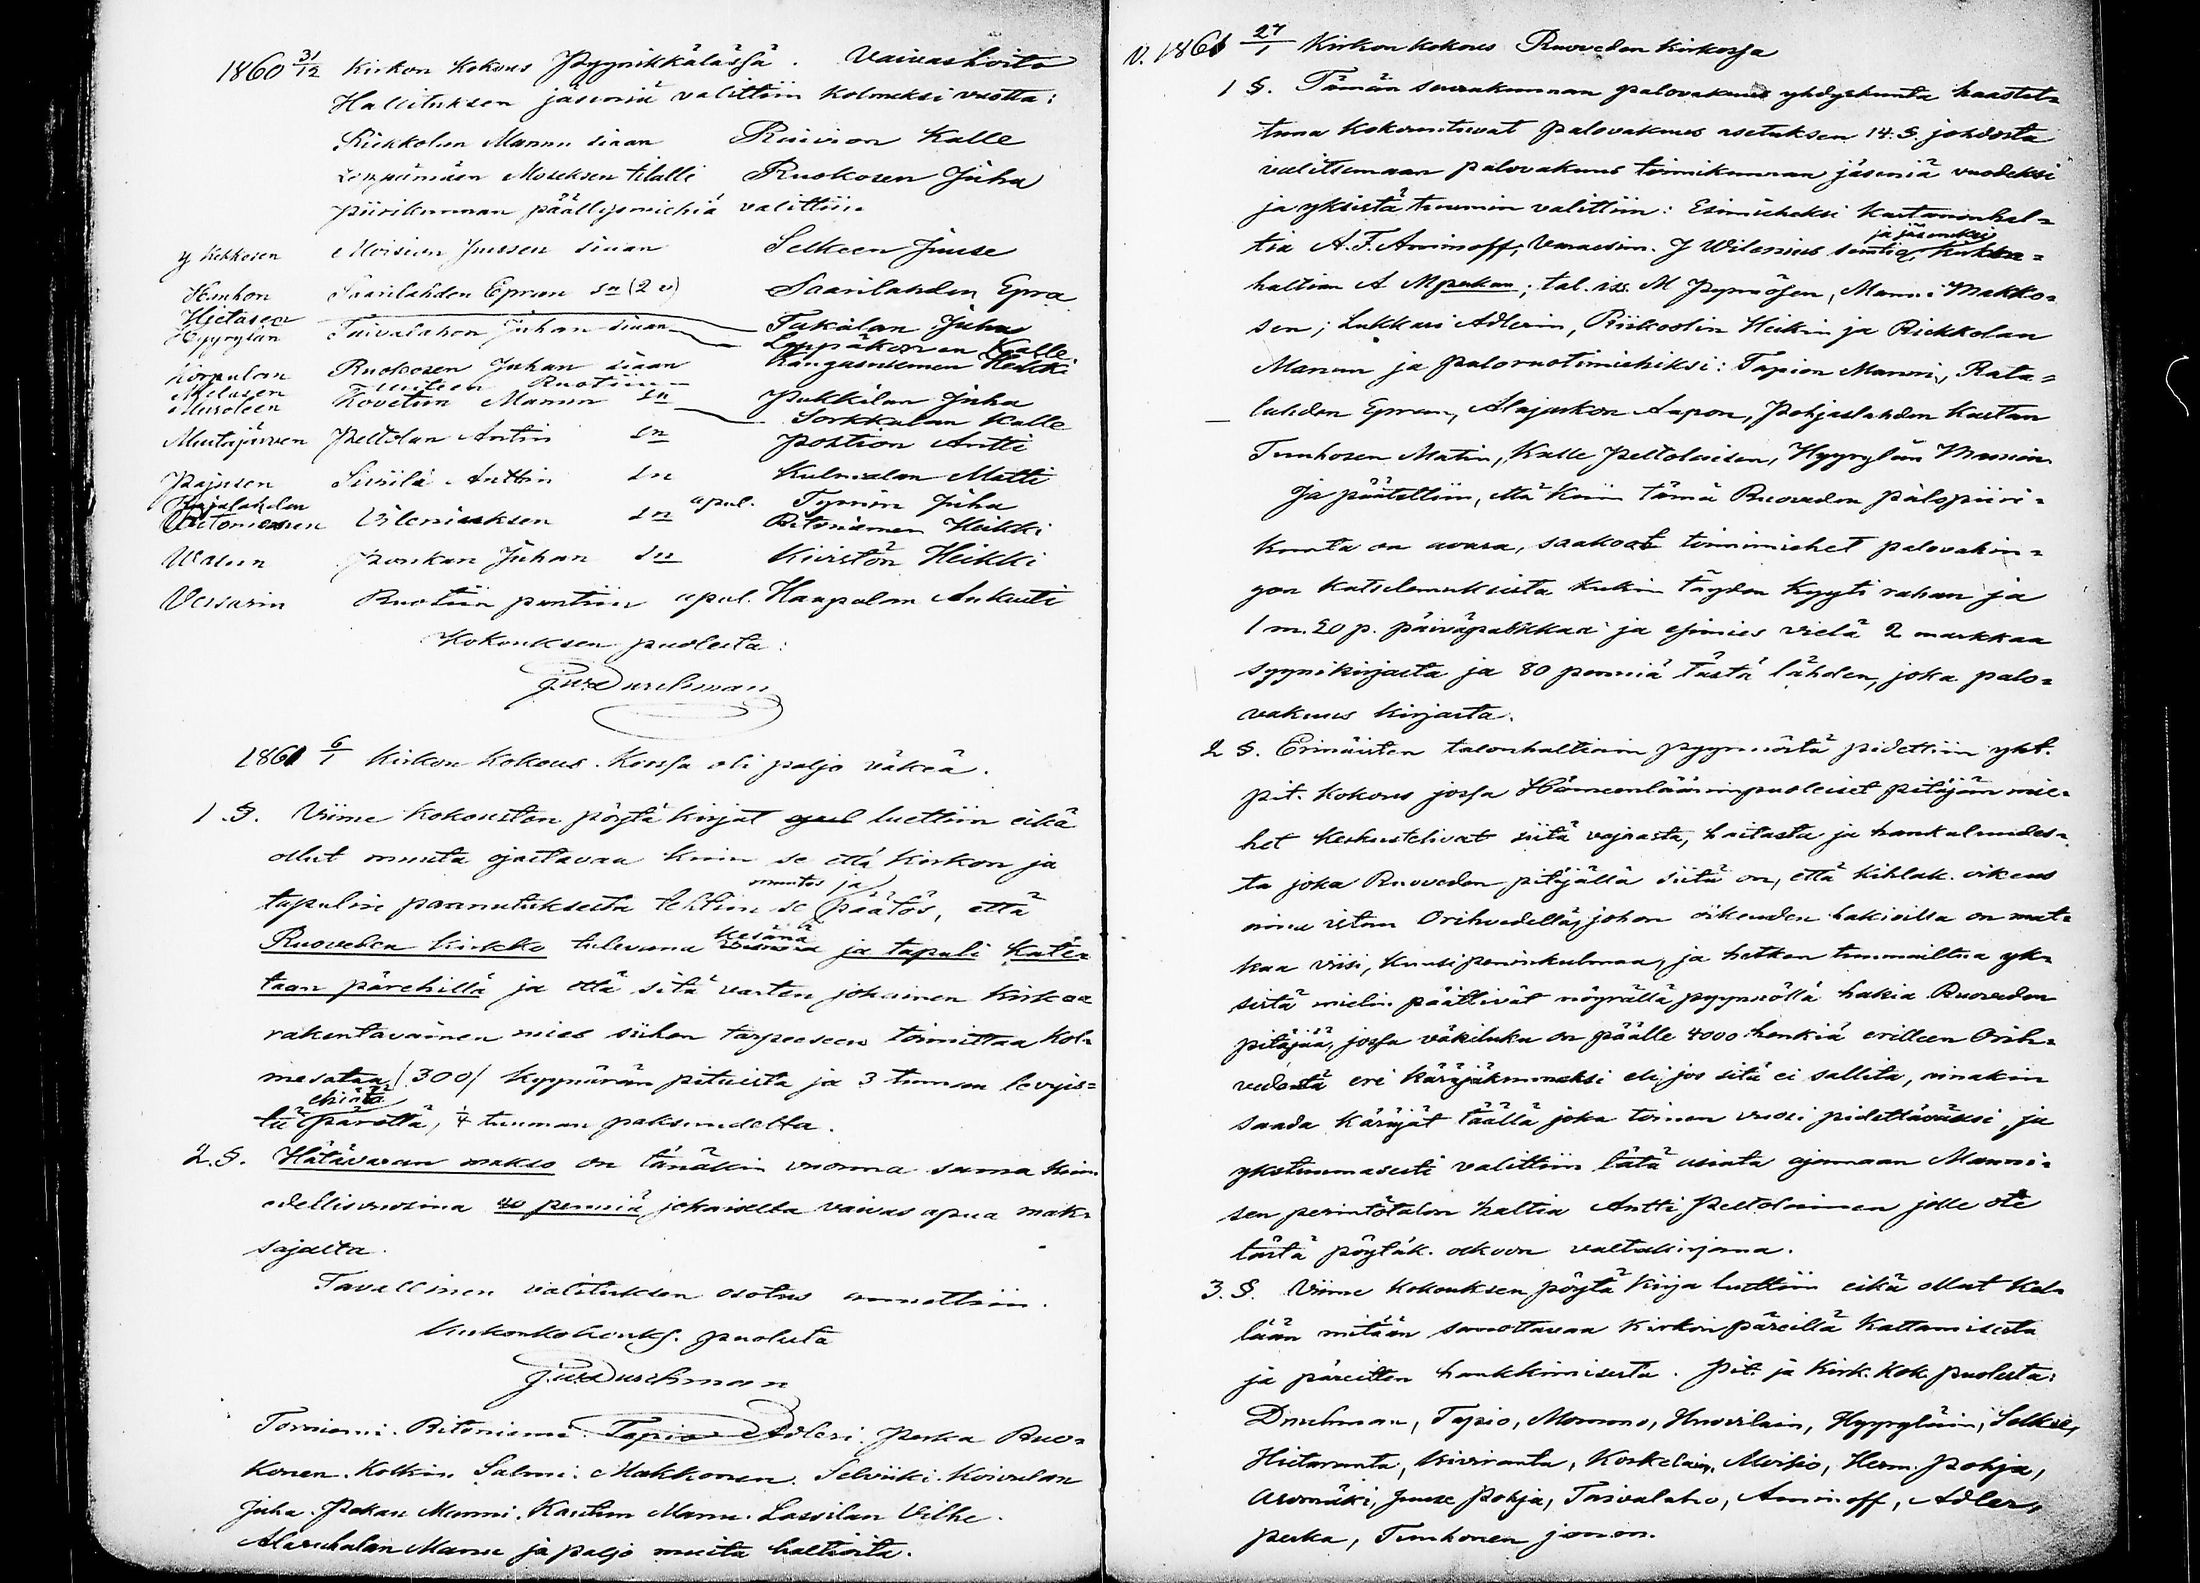 1860 31/12 Kirkon Kokous Pyynikkälässä. Vaivashoito
Hallituksen jäseniä valittiin Kolmeksi vuotta:
Riekkolan Mannu siaan Ruivion Kalle
Moseksen tilalle Ruokosen Juha
piirikunnan päällysmiehiä valittiin
Y Kekkosen Moision Jussen siaan Selkeen Juuse
Hunhon Saarilahden Epran sn (2 v) Saarilahden Epra
Hietasen Tukalan Juha
Hyyrylän Taivalahon Juhan siaan Leppäkosen Kalle
Korpulan Ruokosen Juhan siaan Kangasniemen Heikki
Ruotiin
Muroleen Kovetun Mannun sn Pukkilan Juha
Sorkkalan Kalle
Mustajärven Peltolan Antin sn Pohtion Antti
Pajusen Siivilä Anttin sn Kulmalan Matti
Kajalahden apul. Tynin Juha
Ritoniemen Vileniuksen sn Ritoniemen Heikki
Wasun Juhan sn Kiviston Heikki
Vessarin Ruotiin apul. Haapalan Ankusti
Kokouksen puolesta:
J.W. Durchman
1861 6/1 Kirkon Kokous. Kussa oli paljo väkeä.
1 §. Viime Kokousten pöytä kirjat luettiin eikä
ollut muuta ojastavaa kuin se että Kirkon ja
muutos ja
tapulin parannuksesta tehtiin se päätös, että
kesänä
Ruoveden kirkko tulevana ja tapuli Kate-
taan pärehillä ja että sitä varten jokainen Kirkoa
rakentavainen mies siihen tarpeeseen toimittaa Kol-
mesataa (300) Kyynärän pituista ja 3 tuuman levyis-
ehjätä
tä pärettä, 1/4 tuuman paksuudelta.
2. §. Hätävaran makso on tänäkin vuonna sama kuin
edellisvuosina 40 penniä jokaiselta vaivas apua mak-
sajalta.
Tavallinen valituksen osotus annettiin.
Kirkonkokouks. puolesta
J.W. Durchman
Torniemi. Ritoniemi. Tapio. Adleri. Perka Ruo-
konen. Kolkin. Salmi. Makkonen. Selviiki. Koivulan
Juha. Pekan Manni. Kautun Mannu. Lassilan Vilhe.
Alaruhalan Mannu ja paljo muita haltioita.
V. 1861 27/1 Kirkon kokous Ruoveden Kirkossa
1 §. Tämän seurakunnan palovakuus yhdyskunta haastet-
tuna kokoontuvat palovakuus asetuksen 14. §. johdosta
valitsemaan palovakuus toimikunnan jäseniä vuodeksi
ja yksistä tuumin valittiin: Esimieheksi Kartanonhal-
ja jäseneksi
tia A. F. Aminoff, Varaesim. J Wilenius Kirkkoa-
haltian A ; tal. iss. M Pynnösen, Manni Makko-
sen; Lukkari Adlerin, Heikin ja Riekkolan
Mannun ja paloruotimiehiksi: Tapion Manni, Rata-
lahden Epran, Alajuskon Aapon, Pohjaslahden Kustan
Tuuhosen Matin, Kalle Peltolaisen, Hyyrylän Mannin
Ja päätettiin, että Kuin tämä Ruoveden palopiiri-
Kunta on avara, saakoot toimimiehet palovahin-
gon katselemuksista kukin täyden Kyyti rahan ja
1 m. 20 p. päiväpalkkaa ja esimies vielä 2 markkaa
syynikirjasta ja 80 penniä tästä lähden, joka palo-
vakuus kirjasta.
2 §. Erinäisten talonhaltioin pyynnöstä pidettiin yht.
pit. Kokous jossa Hämeenläänin puoleiset pitäjän mie-
het keskustelivat siitä vajasta, haitasta ja hankaluudes-
ta joka Ruoveden pitäjällä siitä on, että Kihlak. oikeus
aina istuu Orihvedellä, johon oikeuden hakioilla on mat-
kaa viisi, kuusi peninkulmaa, ja hetken tuumailtua yk-
sistä mielin päättivät nöyrällä pyynnöllä hakia Ruoveden
pitäjää, jossa väkiluku on päälle 4000 henkiä erilleen Orih-
vedestä eri Käräjäkunnaksi eli jos sitä ei sallita, ainakin
saada Käräjät täällä joka toinen vuosi pidettäväksi, ja
ykstuumasesti valittiin tätä asiata ajamaan Manni-
sen perintötalon haltia Antti Peltolainen jolle ote
tästä pöytäk. olkoon valtakirjana.
3. §. Viime Kokouksen pöytä Kirja luettiin eikä ollut Kel-
lään mitään sanottavaa Kirkon päreillä Kattamisesta
ja päreitten hankkimisesta. Pit. ja Kirk. Kok. puolesta:
Durchman, Tapio, Mommo, Huovilain, Hyyryläin, Selkee,
Hietaranta, Kiviranta, Koskelain, Moisio, Herm. Pohja,
Aromäki, Juuse Pohja, Taivalaho, Aminoff, Adler,
Perka, Tuuhonen j.m.m.